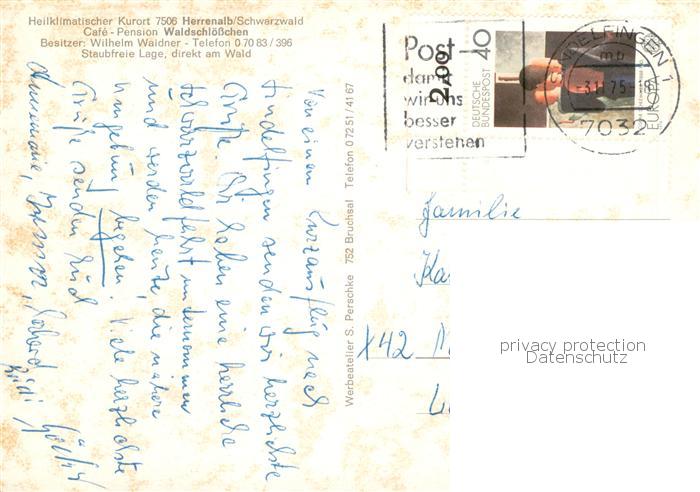 Heilklimatischer Kurort 7506 Herrenalb/Schwarzwald
Café - Pension Waldschlößchen
Besitzer: Wilhelm Waidner - Telefon 0 70 83 / 396
Staubfreie Lage, direkt am Wald
Von einem Kurzausflug nach
Sindelfingen senden wir herzlichste
Grüße. Wir haben eine herrliche
Schwarzwaldfahrt unternommen
und werden heute die nähere
Umgebung begehen. Viele herzlichste
Grüße senden Euch
Annemarie, Gerhard
Werbeatelier S. Perschke 752 Bruchsal Telefon 0 72 51 / 41 67
Post
damit
wir uns
besser
verstehen
2,00
40
DEUTSCHE
BUNDESPOST
EUROPA
SINDELFINGEN 1
mb
75
7032
Familie
Ka
742
privacy protection
Datenschutz